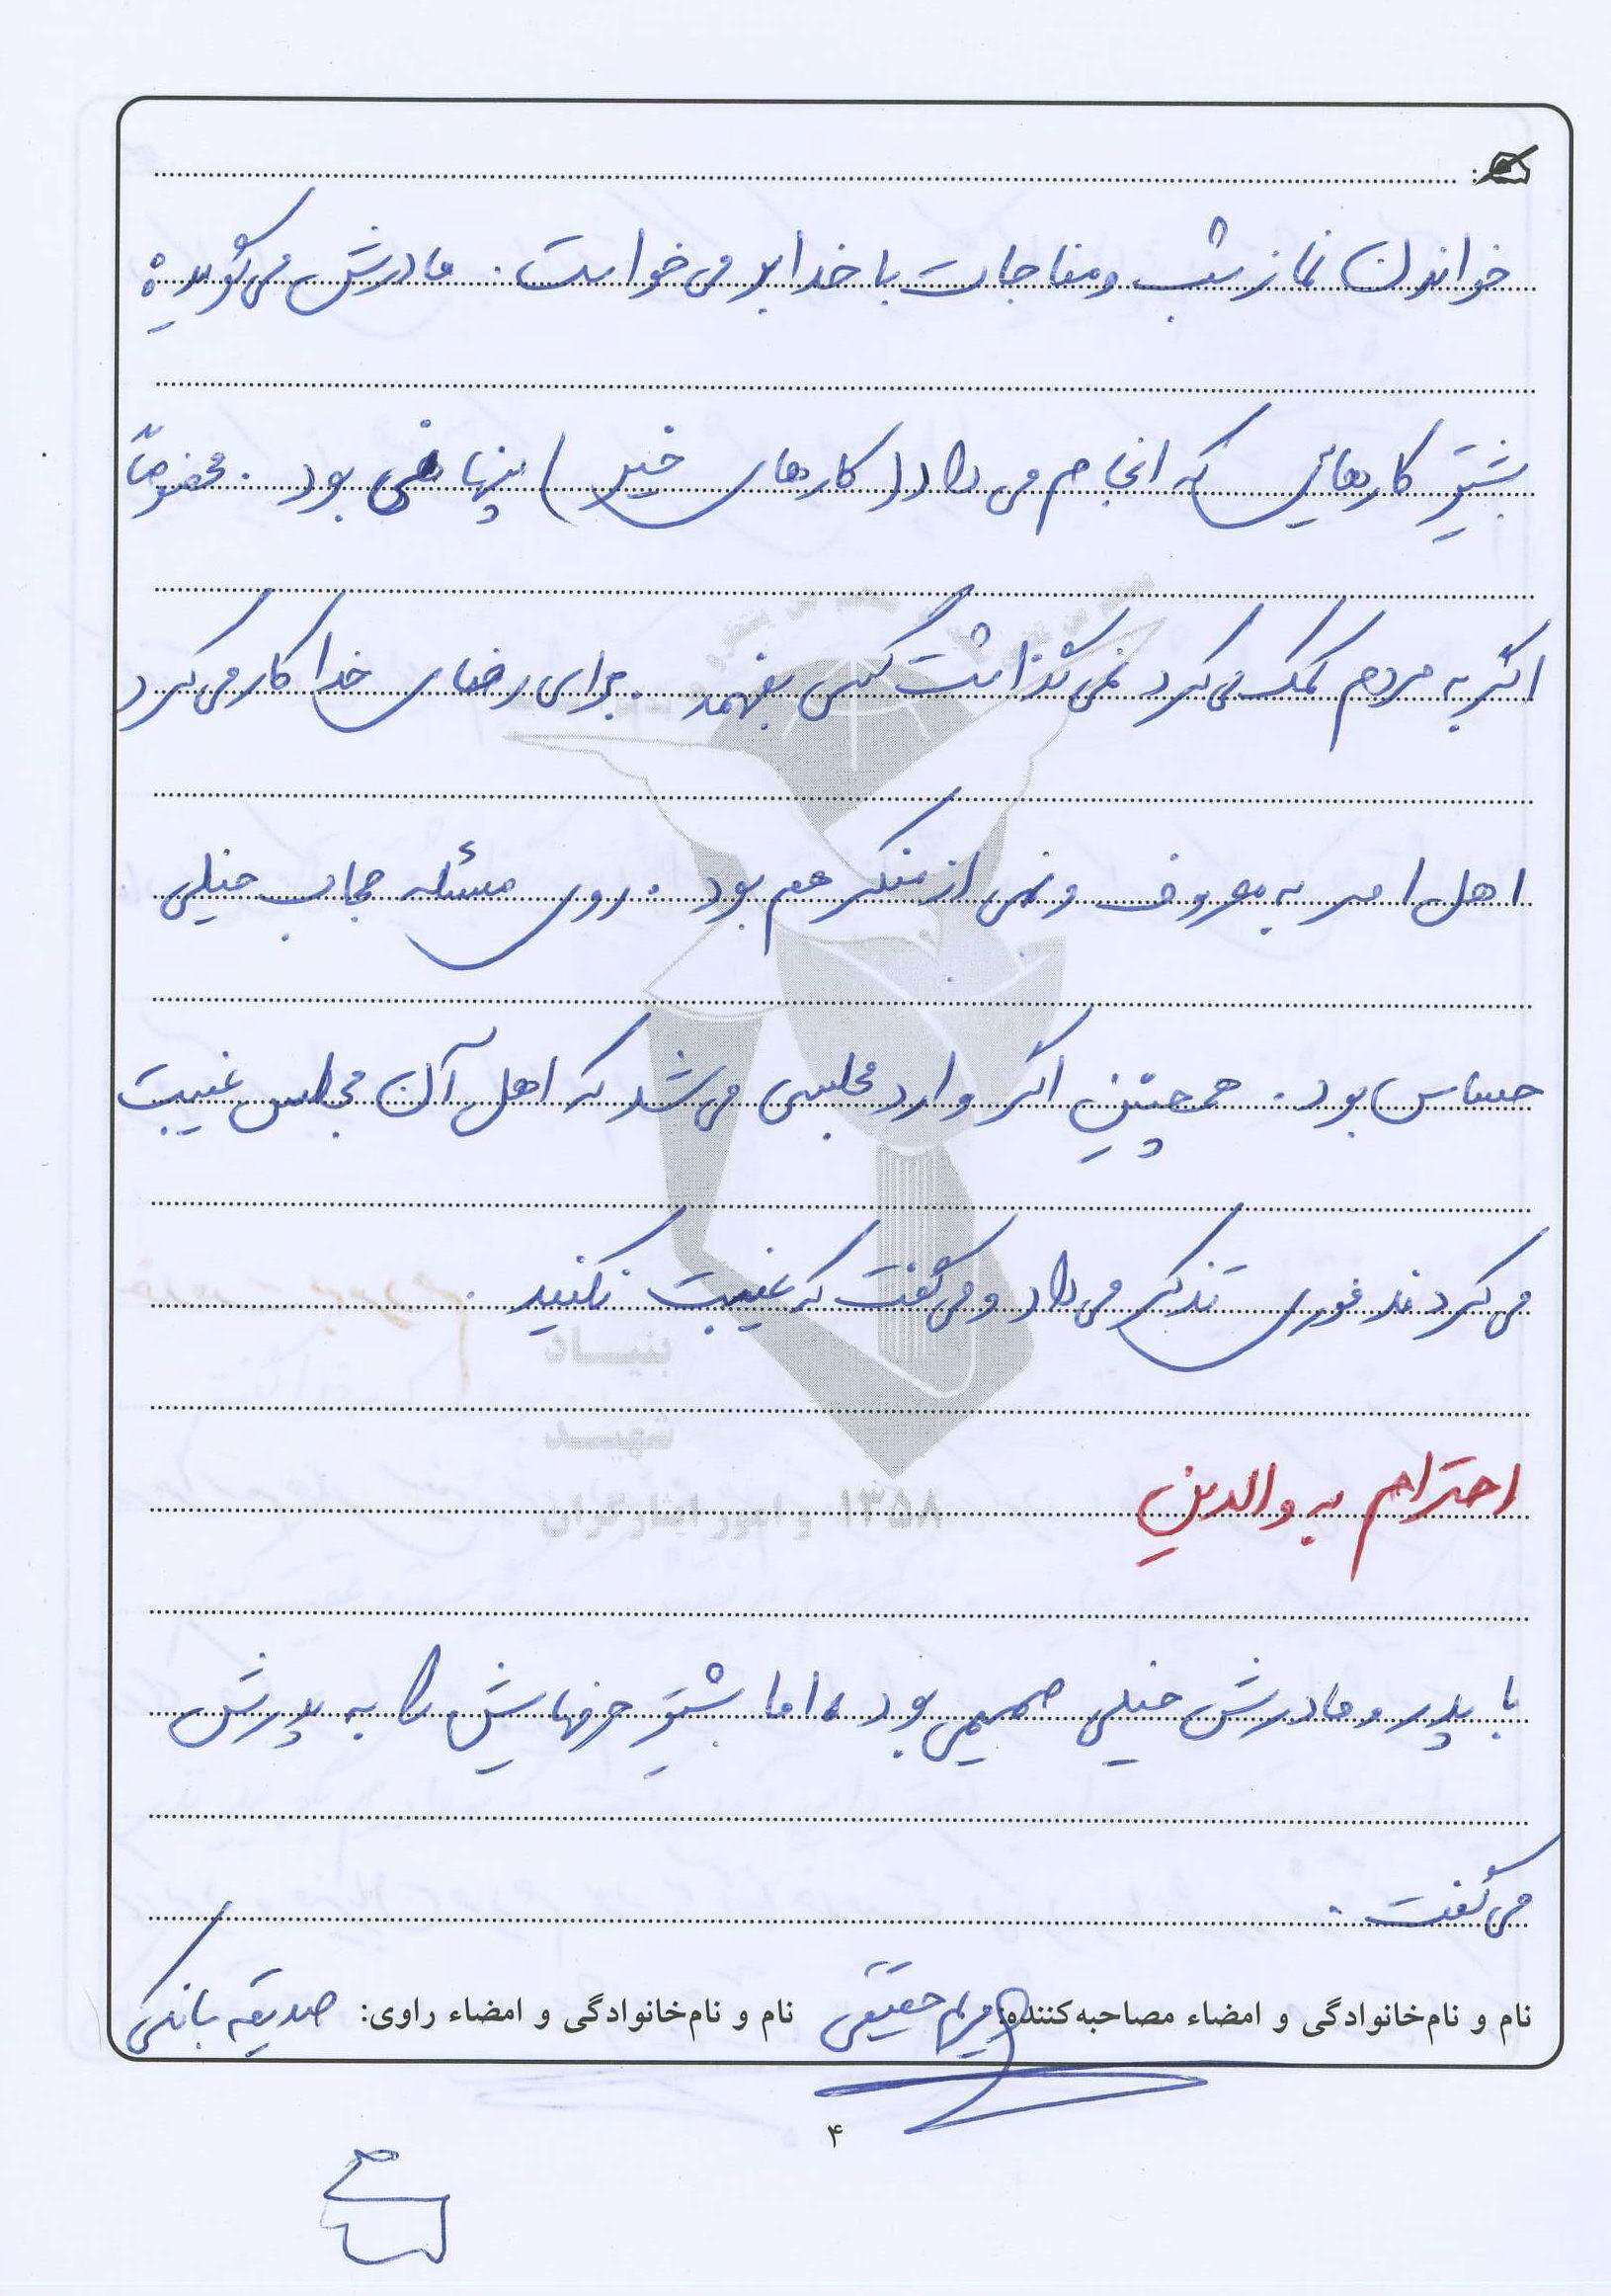 خواندن نماز شب و مناجات با خدا بر می خواست. مادرش می گوید:
بشتر کارهایی که انجام می داد (کارهای خیر) پنهانی بود. مخصوصاً
اگر به مردم کمک می کرد نمی گذاشت کسی بفهمد. برای رضای خدا کار می کرد
اهل امر به معروف و نهی از منکر هم بود. روی مسئله حجاب خیلی
حساس بود. همچنین اگر وارد مجلسی می شد که اهل آن مجلس غیبت
می کردند فوری تذکر می داد و می گفت که غیبت نکنید.
بنیاد
شهید
و امور ایثارگران ۱۳۵۸
احترام به والدین
با پدر و مادرش خیلی صمیمی بود، اما بشتر حرفهایش را به پدرش
می گفت.
نام و نام‌خانوادگی و امضاء مصاحبه‌کننده: مریم حقیقی نام و نام‌خانوادگی و امضاء راوی: صدیقه بانکی
۴